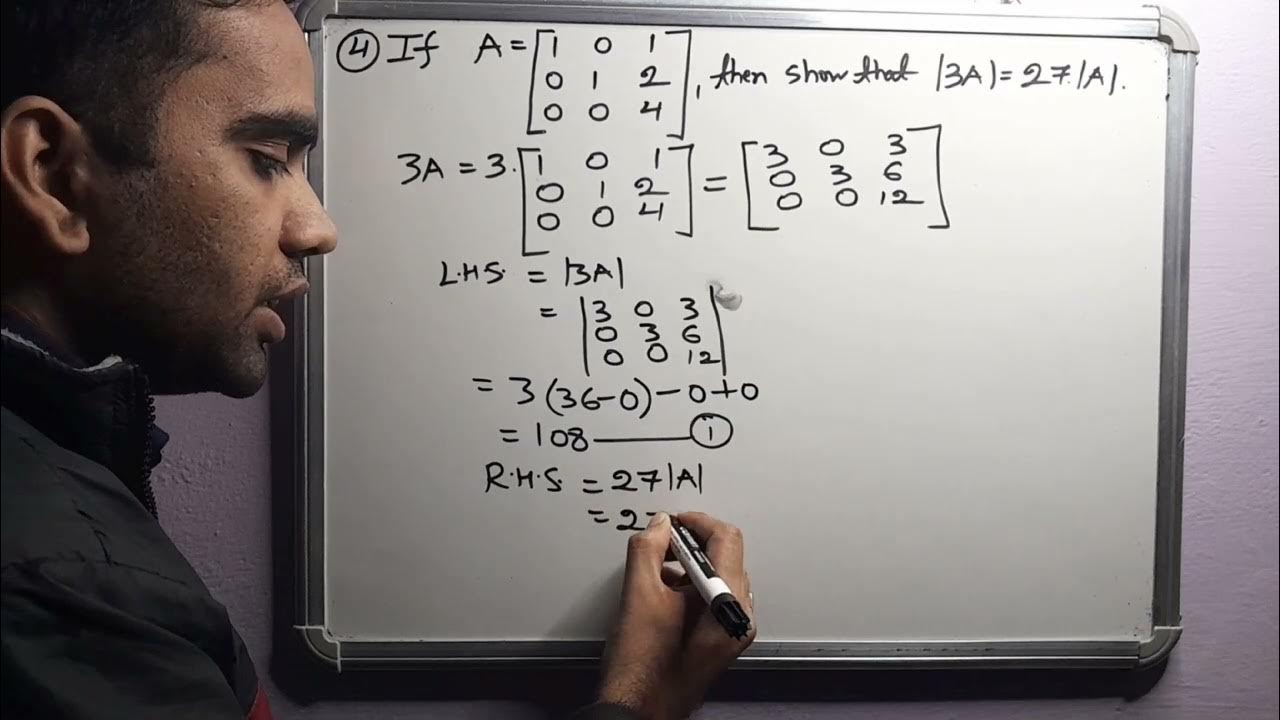 ④ If A = [1 0 1
0 1 2
0 0 4], then show that |3A| = 27.|A|.
3A = 3. [1 0 1
0 1 2
0 0 4] = [3 0 3
0 3 6
0 0 12]
L.H.S. = |3A|
= |3 0 3
0 3 6
0 0 12|
= 3(36-0)-0+0
= 108 —— ①
R.H.S. = 27|A|
= 27